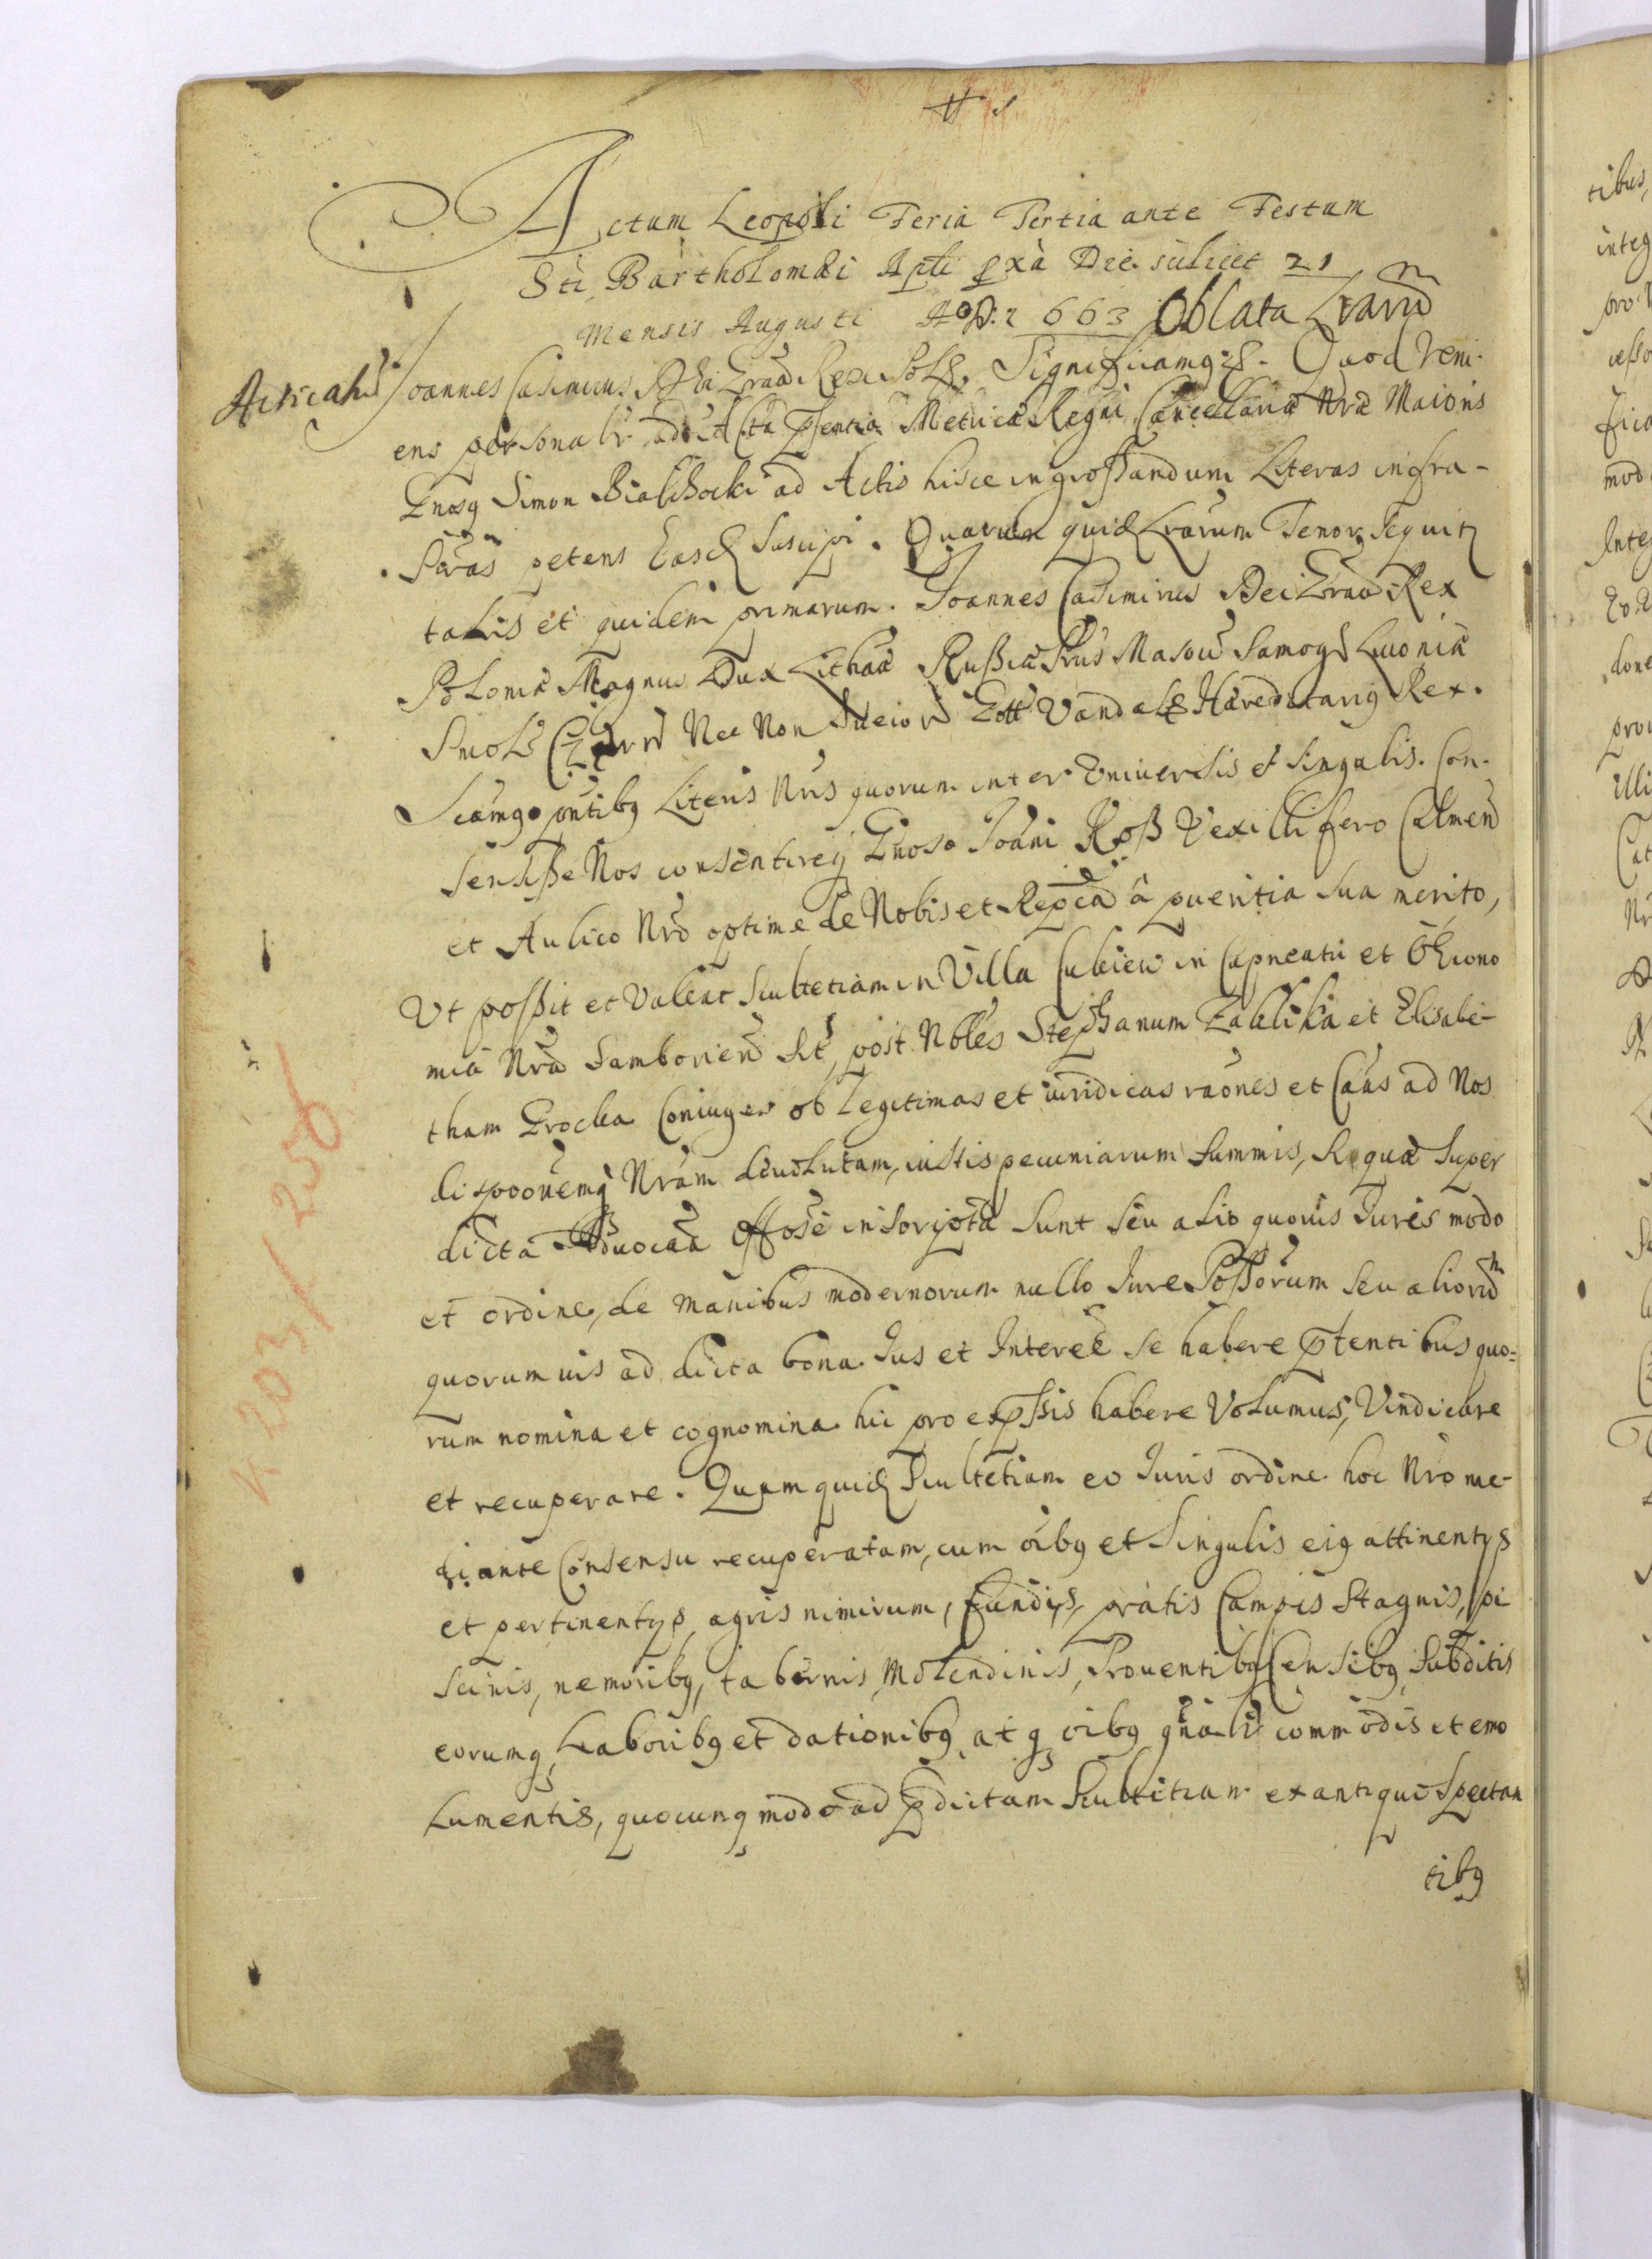 Actum Leopoli Feria Tertia ante Festum
Sti Bartholomæi Apli pxà Die scilicet 21
Mensis Augusti AoD: 1663 Oblata Lrarũ
Joannes Casimirus Dei Graã Rex Pol. Significamq. Quod veni-
ens personalr ad Acta pſentia Metricæ Regni Cancellariæ Nræ Maioris
Gnosq Simon Bialskocki ad Actis hisce ingroſsandum Literas infra-
ſcras petens Easq Suscipi. Quarum quid Lrarum Tenor Sequitr
talis et quidem primarum. Joannes Casimirus Dei Graã Rex
Poloniæ Magnus Dux Lithaæ Rußiæ Prus Masoũ Samog Livoniæ
Smol Czern Nec Non Suecor Gott Vandalq Hæreditariq Rex.
Sciamqo pntibq Literis Nris quorum inter Universis et Singulis. Con-
senſiße Nos consentireq Gnoso Joãni Roß Vexillifero Calmeñ
et Aulico Nrõ optime de Nobis et Repca à pueritia sua merito,
Vt poſsit et Valeat Scultetiam in Villa in Capneatu et Œcono
mia Nrã Samborieñ Sit, post Nobles Stephanum et Elisabe-
tham Grocka Coniuges ob Legitimas et iuridicas raones et Caas ad Nos
dispooñemq Nram devolutam, iustis pecuniarum Summis, Siquæ Super
dicta Advocaã offose inscriptæ Sunt seu alio quovis Juris modo
et ordine, de manibus modernorum nullo Jure Poſsorum seu aliorũ
quorumvis ad dicta bona Jus et Intereẽ se habere ptentibus quo=
rum nomina et cognomina hic pro expſsis habere Volumus, Vindicare
et recuperare. Quam quid Scultetiam eo Juris ordine hoc Nro me-
diante Consensu recuperatam, cum oibq et Singulis eiq attinentys
et pertinentys, agris nimirum, fundis, pratis Campis Stagnis, pi
scinis, nemoribq, tabernis, Molendinis, Proventibq Censibq, Subditis
eorumq Laboribq et dationibq, atq oibq gñalr commodis et emo
lumentis, quocunq modo ad pdictam Scultetiam ex antiquo Spectan
tibq
K 203/250